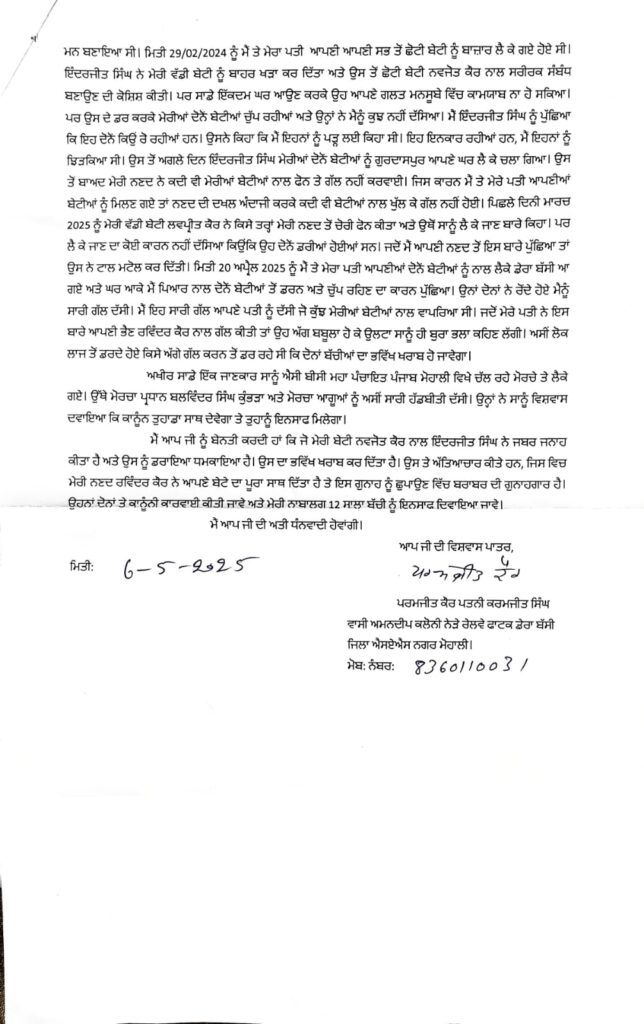 ਮਨ ਬਣਾਇਆ ਸੀ। ਮਿਤੀ 29/02/2024 ਨੂੰ ਮੈਂ ਤੇ ਮੇਰਾ ਪਤੀ ਆਪਣੀ ਆਪਣੀ ਸਭ ਤੋਂ ਛੋਟੀ ਬੇਟੀ ਨੂੰ ਬਾਜ਼ਾਰ ਲੈ ਕੇ ਗਏ ਹੋਏ ਸੀ।
ਇੰਦਰਜੀਤ ਸਿੰਘ ਨੇ ਮੇਰੀ ਵੱਡੀ ਬੇਟੀ ਨੂੰ ਬਾਹਰ ਖੜਾ ਕਰ ਦਿੱਤਾ ਅਤੇ ਉਸ ਤੋਂ ਛੋਟੀ ਬੇਟੀ ਨਵਜੋਤ ਕੌਰ ਨਾਲ ਸਰੀਰਕ ਸੰਬੰਧ
ਬਣਾਉਣ ਦੀ ਕੋਸ਼ਿਸ਼ ਕੀਤੀ। ਪਰ ਸਾਡੇ ਇੱਕਦਮ ਘਰ ਆਉਣ ਕਰਕੇ ਉਹ ਆਪਣੇ ਗਲਤ ਮਨਸੂਬੇ ਵਿੱਚ ਕਾਮਯਾਬ ਨਾ ਹੋ ਸਕਿਆ।
ਪਰ ਉਸ ਦੇ ਡਰ ਕਰਕੇ ਮੇਰੀਆਂ ਦੋਨੋਂ ਬੇਟੀਆਂ ਚੁੱਪ ਰਹੀਆਂ ਅਤੇ ਉਨ੍ਹਾਂ ਨੇ ਮੈਨੂੰ ਕੁਝ ਨਹੀਂ ਦੱਸਿਆ। ਮੈਂ ਇੰਦਰਜੀਤ ਸਿੰਘ ਨੂੰ ਪੁੱਛਿਆ
ਕਿ ਇਹ ਦੋਨੋਂ ਕਿਉਂ ਰੋ ਰਹੀਆਂ ਹਨ। ਉਸਨੇ ਕਿਹਾ ਕਿ ਮੈਂ ਇਹਨਾਂ ਨੂੰ ਪੜ੍ਹ ਲਈ ਕਿਹਾ ਸੀ। ਇਹ ਇਨਕਾਰ ਰਹੀਆਂ ਹਨ, ਮੈਂ ਇਹਨਾਂ ਨੂੰ
ਝਿੜਕਿਆ ਸੀ। ਉਸ ਤੋਂ ਅਗਲੇ ਦਿਨ ਇੰਦਰਜੀਤ ਸਿੰਘ ਮੇਰੀਆਂ ਦੋਨੋਂ ਬੇਟੀਆਂ ਨੂੰ ਗੁਰਦਾਸਪੁਰ ਆਪਣੇ ਘਰ ਲੈ ਕੇ ਚਲਾ ਗਿਆ। ਉਸ
ਤੋਂ ਬਾਅਦ ਮੇਰੀ ਨਣਦ ਨੇ ਕਦੀ ਵੀ ਮੇਰੀਆਂ ਬੇਟੀਆਂ ਨਾਲ ਫੋਨ ਤੇ ਗੱਲ ਨਹੀਂ ਕਰਵਾਈ। ਜਿਸ ਕਾਰਨ ਮੈਂ ਤੇ ਮੇਰੇ ਪਤੀ ਆਪਣੀਆਂ
ਬੇਟੀਆਂ ਨੂੰ ਮਿਲਣ ਗਏ ਤਾਂ ਨਣਦ ਦੀ ਦਖਲ ਅੰਦਾਜੀ ਕਰਕੇ ਕਦੀ ਵੀ ਬੇਟੀਆਂ ਨਾਲ ਖੁੱਲ ਕੇ ਗੱਲ ਨਹੀਂ ਹੋਈ। ਪਿਛਲੇ ਦਿਨੀ ਮਾਰਚ
2025 ਨੂੰ ਮੇਰੀ ਵੱਡੀ ਬੇਟੀ ਲਵਪ੍ਰੀਤ ਕੌਰ ਨੇ ਕਿਸੇ ਤਰ੍ਹਾਂ ਮੇਰੀ ਨਣਦ ਤੋਂ ਚੋਰੀ ਫੋਨ ਕੀਤਾ ਅਤੇ ਉਥੋਂ ਸਾਨੂੰ ਲੈ ਕੇ ਜਾਣ ਬਾਰੇ ਕਿਹਾ। ਪਰ
ਲੈ ਕੇ ਜਾਣ ਦਾ ਕੋਈ ਕਾਰਨ ਨਹੀਂ ਦੱਸਿਆ ਕਿਉਂਕਿ ਉਹ ਦੋਨੋਂ ਡਰੀਆਂ ਹੋਈਆਂ ਸਨ। ਜਦੋਂ ਮੈਂ ਆਪਣੀ ਨਣਦ ਤੋਂ ਇਸ ਬਾਰੇ ਪੁੱਛਿਆ ਤਾਂ
ਉਸ ਨੇ ਟਾਲ ਮਟੋਲ ਕਰ ਦਿੱਤੀ। ਮਿਤੀ 20 ਅਪ੍ਰੈਲ 2025 ਨੂੰ ਮੈਂ ਤੇ ਮੇਰਾ ਪਤੀ ਆਪਣੀਆਂ ਦੋਨੋਂ ਬੇਟੀਆਂ ਨੂੰ ਨਾਲ ਲੈਕੇ ਡੇਰਾ ਬੱਸੀ ਆ
ਗਏ ਅਤੇ ਘਰ ਆਕੇ ਮੈਂ ਪਿਆਰ ਨਾਲ ਦੋਨੋਂ ਬੇਟੀਆਂ ਤੋਂ ਡਰਨ ਅਤੇ ਚੁੱਪ ਰਹਿਣ ਦਾ ਕਾਰਨ ਪੁੱਛਿਆ। ਉਨਾਂ ਦੋਨਾਂ ਨੇ ਰੋਂਦੇ ਹੋਏ ਮੈਨੂੰ
ਸਾਰੀ ਗੱਲ ਦੱਸੀ। ਮੈਂ ਇਹ ਸਾਰੀ ਗੱਲ ਆਪਣੇ ਪਤੀ ਨੂੰ ਦੱਸੀ ਜੋ ਕੁੱਝ ਮੇਰੀਆਂ ਬੇਟੀਆਂ ਨਾਲ ਵਾਪਰਿਆ ਸੀ। ਜਦੋਂ ਮੇਰੇ ਪਤੀ ਨੇ ਇਸ
ਬਾਰੇ ਆਪਣੀ ਭੈਣ ਰਵਿੰਦਰ ਕੌਰ ਨਾਲ ਗੱਲ ਕੀਤੀ ਤਾਂ ਉਹ ਅੱਗ ਬਬੂਲਾ ਹੋ ਕੇ ਉਲਟਾ ਸਾਨੂੰ ਹੀ ਬੁਰਾ ਭਲਾ ਕਹਿਣ ਲੱਗੀ। ਅਸੀਂ ਲੋਕ
ਲਾਜ ਤੋਂ ਡਰਦੇ ਹੋਏ ਕਿਸੇ ਅੱਗੇ ਗੱਲ ਕਰਨ ਤੋਂ ਡਰ ਰਹੇ ਸੀ ਕਿ ਦੋਨਾਂ ਬੱਚੀਆਂ ਦਾ ਭਵਿੱਖ ਖਰਾਬ ਹੋ ਜਾਵੇਗਾ।
ਅਖੀਰ ਸਾਡੇ ਇੱਕ ਜਾਣਕਾਰ ਸਾਨੂੰ ਐਸੀ ਬੀਸੀ ਮਹਾ ਪੰਚਾਇਤ ਪੰਜਾਬ ਮੋਹਾਲੀ ਵਿਖੇ ਚੱਲ ਰਹੇ ਮੋਰਚੇ ਤੇ ਲੈਕੇ
ਗਏ। ਉੱਥੇ ਮੋਰਚਾ ਪ੍ਰਧਾਨ ਬਲਵਿੰਦਰ ਸਿੰਘ ਕੁੰਭੜਾ ਅਤੇ ਮੋਰਚਾ ਆਗੂਆਂ ਨੂੰ ਅਸੀਂ ਸਾਰੀ ਹੱਡਬੀਤੀ ਦੱਸੀ। ਉਨ੍ਹਾਂ ਨੇ ਸਾਨੂੰ ਵਿਸ਼ਵਾਸ
ਦਵਾਇਆ ਕਿ ਕਾਨੂੰਨ ਤੁਹਾਡਾ ਸਾਥ ਦੇਵੇਗਾ ਤੇ ਤੁਹਾਨੂੰ ਇਨਸਾਫ ਮਿਲੇਗਾ।
ਮੈਂ ਆਪ ਜੀ ਨੂੰ ਬੇਨਤੀ ਕਰਦੀ ਹਾਂ ਕਿ ਜੋ ਮੇਰੀ ਬੇਟੀ ਨਵਜੋਤ ਕੌਰ ਨਾਲ ਇੰਦਰਜੀਤ ਸਿੰਘ ਨੇ ਜਬਰ ਜਨਾਹ
ਕੀਤਾ ਹੈ ਅਤੇ ਉਸ ਨੂੰ ਡਰਾਇਆ ਧਮਕਾਇਆ ਹੈ। ਉਸ ਦਾ ਭਵਿੱਖ ਖਰਾਬ ਕਰ ਦਿੱਤਾ ਹੈ। ਉਸ ਤੇ ਅੱਤਿਆਚਾਰ ਕੀਤੇ ਹਨ, ਜਿਸ ਵਿਚ
ਮੇਰੀ ਨਣਦ ਰਵਿੰਦਰ ਕੌਰ ਨੇ ਆਪਣੇ ਬੇਟੇ ਦਾ ਪੂਰਾ ਸਾਥ ਦਿੱਤਾ ਹੈ ਤੇ ਇਸ ਗੁਨਾਹ ਨੂੰ ਛੁਪਾਉਣ ਵਿੱਚ ਬਰਾਬਰ ਦੀ ਗੁਨਾਹਗਾਰ ਹੈ।
ਉਹਨਾਂ ਦੋਨਾਂ ਤੇ ਕਾਨੂੰਨੀ ਕਾਰਵਾਈ ਕੀਤੀ ਜਾਵੇ ਅਤੇ ਮੇਰੀ ਨਾਬਾਲਗ 12 ਸਾਲਾ ਬੱਚੀ ਨੂੰ ਇਨਸਾਫ ਦਿਵਾਇਆ ਜਾਵੇ।
ਮੈਂ ਆਪ ਜੀ ਦੀ ਅਤੀ ਧੰਨਵਾਦੀ ਹੋਵਾਂਗੀ।
ਆਪ ਜੀ ਦੀ ਵਿਸ਼ਵਾਸ ਪਾਤਰ,
ਮਿਤੀ: 6-5-2025
ਪਰਮਜੀਤ ਕੌਰ
ਪਰਮਜੀਤ ਕੌਰ ਪਤਨੀ ਕਰਮਜੀਤ ਸਿੰਘ
ਵਾਸੀ ਅਮਨਦੀਪ ਕਲੋਨੀ ਨੇੜੇ ਰੇਲਵੇ ਫਾਟਕ ਡੇਰਾ ਬੱਸੀ
ਜਿਲਾ ਐਸਏਐਸ ਨਗਰ ਮੋਹਾਲੀ।
ਮੋਬ: ਨੰਬਰ: 8360110031